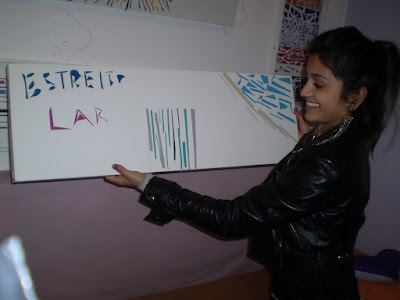 ESTREITO
LAR